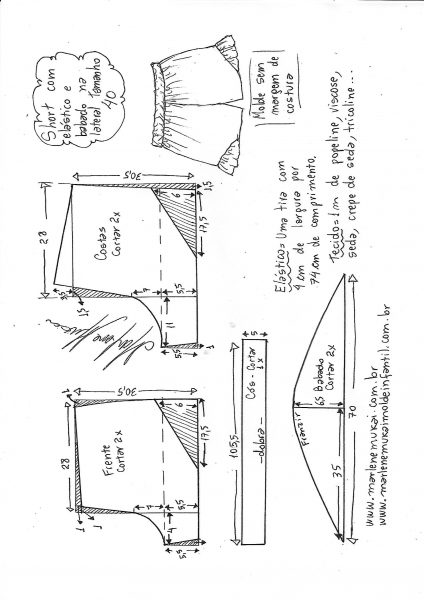 Short com
elástico e
babado na
lateral Tamanho
40
28
1
1
1
30,5
Frente
Cortar 2x
7
6
5,5
4
5,5
17,5
28
5,5
1,5
30,5
Costas
Cortar 2x
7
6
5,5
11
5,5
1
1,5
17,5
Molde sem
margem de
costura
105,5
5
Cós - Cortar
1x
-dobra-
Elástico = Uma tira com
4 cm de largura por
74 cm de comprimento.
Tecido = 1m de popeline, viscose,
seda, crepe de seda, tricoline...
franzir
6,5
Babado
Cortar 2x
35
70
www.marlenemukai.com.br
www.marlenemukaimoldeinfantil.com.br